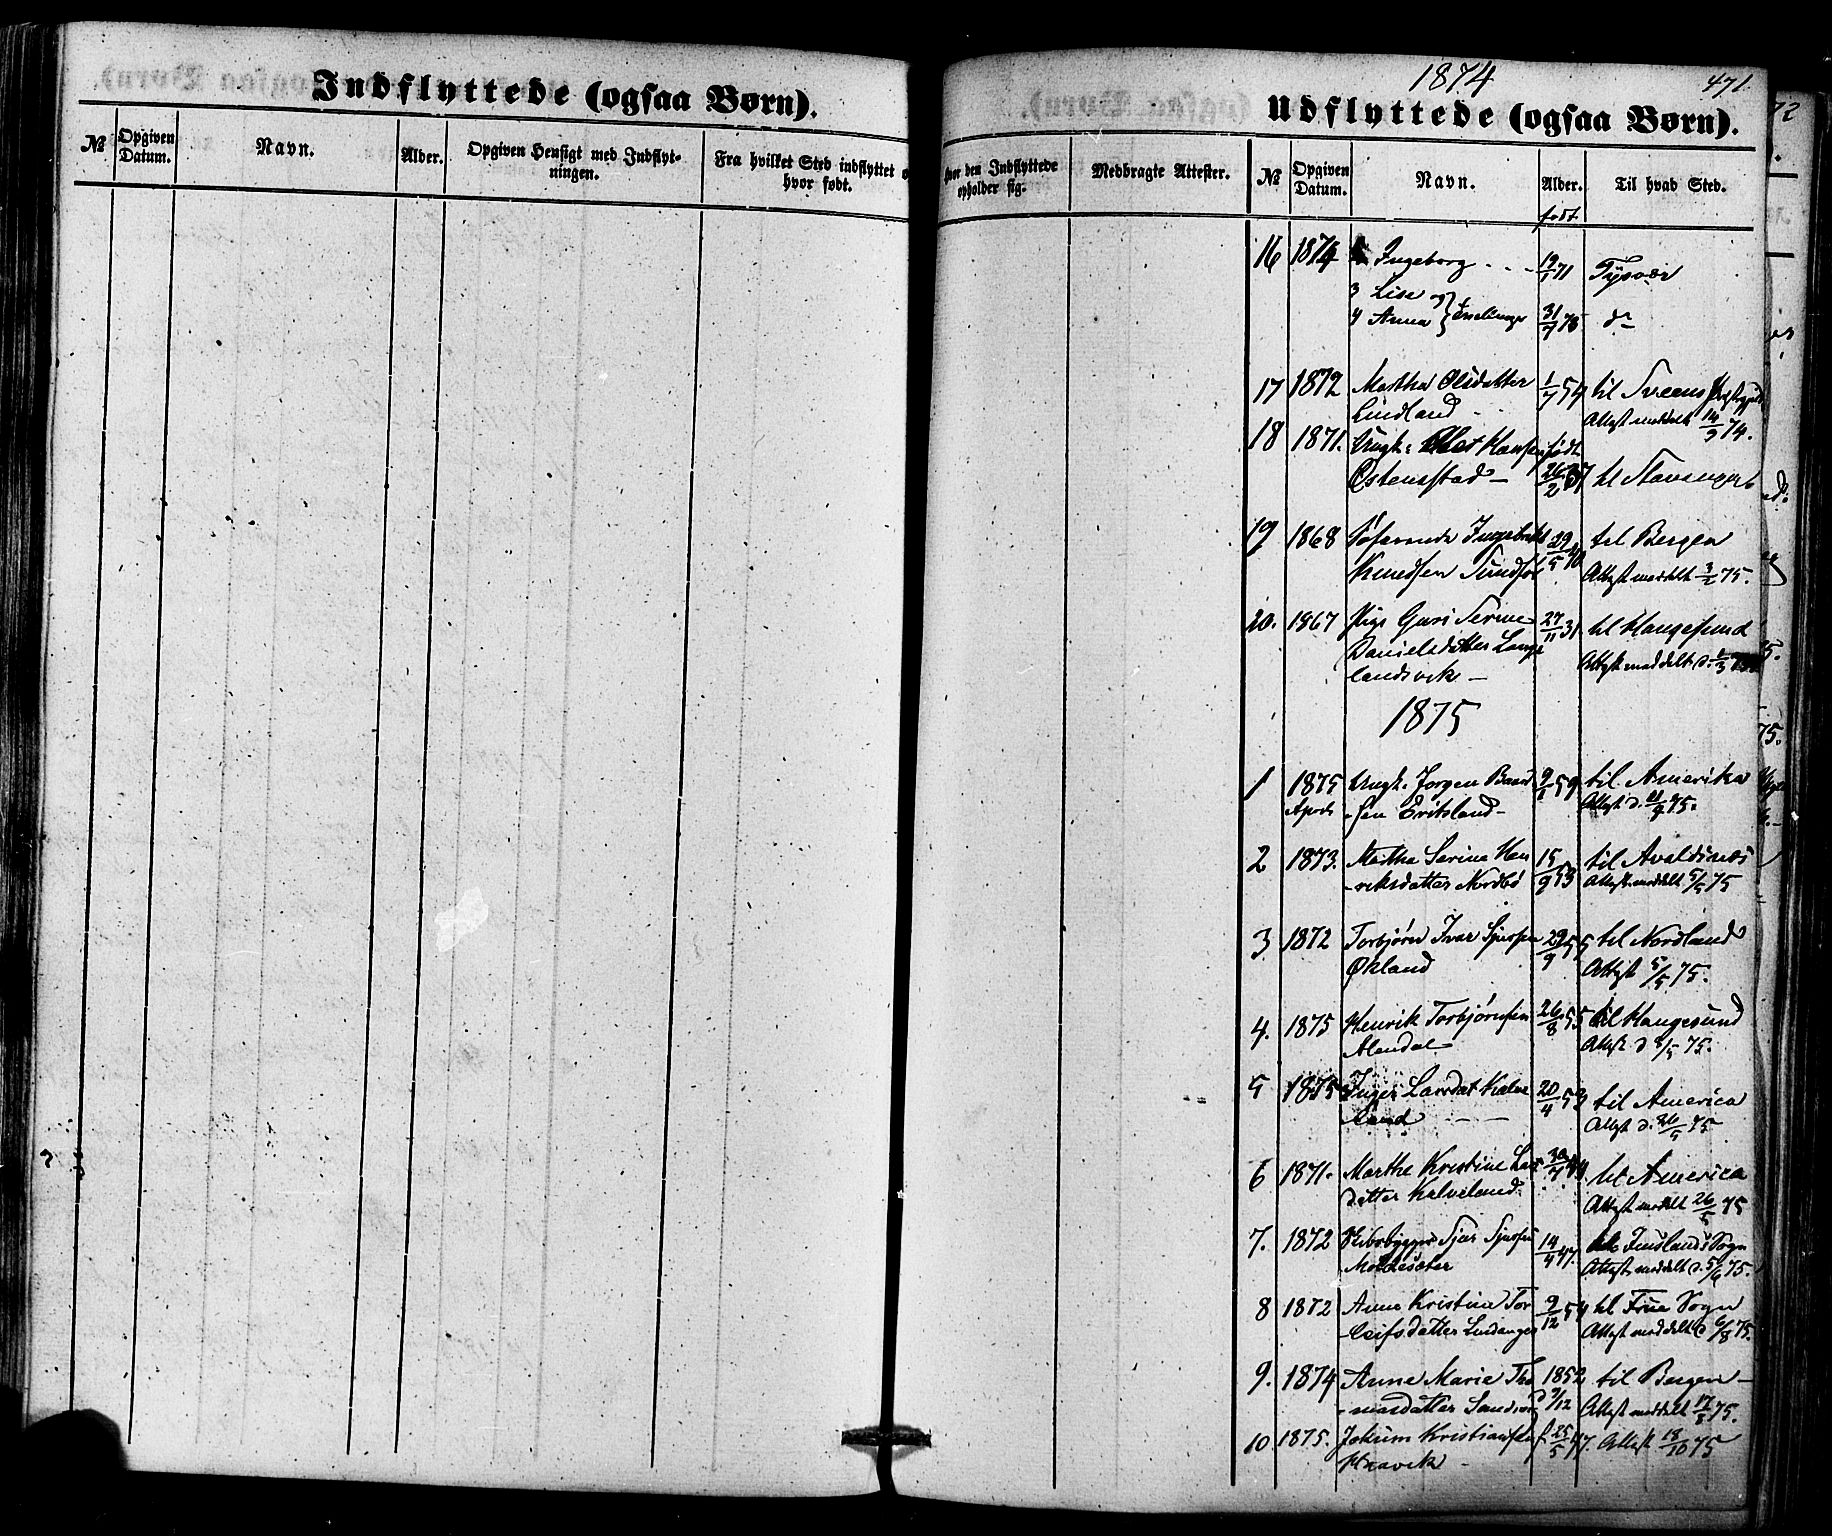 Indflyttede (ogsaa Børn).
No
Opgiven Datum.
Navn.
Alder.
Opgiven Hensigt med Indflyt-
ningen.
Fra hvilket Sted indflyttet
hvor født.
hvor den Indflyttede
opholder sig.
Medbragte Attester.
1874
471
Udflyttede (ogsaa Børn).
No
Opgiven Datum.
Navn.
Alder.
Til hvad Sted.
født
16 1874 Ingeborg 19/1 71 Tysvær
3 Lise og
4 Anna } Tvillinger 31/7 73 do
17 1872 Martha Olsdatter 1/7 54 til Sveens Præstegjeld
Lindland Attest meddelt 14/9 74.
18 1871. Ungk: Hansen født
Østensstad 26/2 til Stavanger
19 1868 Ingebrigt 29/5 40 til Bergen
Knudsen Attest meddelt 3/2 75.
20. 1867 Pige Guri Serine 27/11 31 til Haugesund
Danielsdatter Lange
landsvik Attest meddelt d. 1/3 75
1875
1 1875 Ungk. Jørgen Baard 9/1 59 til Amerika
April -sen Eritsland Attest d. 21/4 75.
2 1873. Martha Serina Hen 15/9 53 til Avaldsnæs
-riksdatter Nordbø Attest meddelt 5/5 75
3 1872 Torbjørn Ivar Sjursen 29/9 55 til Nordland
Økland Attest 5/5 75.
4. 1875 Henrik Torbjørnsen 26/8 55 til Haugesund
Alendal Attest d 8/5 75.
5 1875 Inger Larsdat Kalve 20/4 til America
land Attest d. 26/5 75
6 1871. Marthe Kristine Lars 30/7 til America
datter Kalveland. Attest meddelt 26/5 75
7. 1872 Skibsbygger Sjur Sjursen 14/4 47. Sogn
Attest meddelt d. 5/6 75.
8 1872 Anne Kristine Tor 9/12 54 til Sogn
-leifsdatter Lindanger Attest meddelt d 6/8 75.
9. 1874 Anne Marie Tho 1852 til Bergen
-masdatter d 9/12 Attest meddelt 17/8 75.
10 1875. Jokum Kristiansen f. 25/5 47. Attest 18/10 75